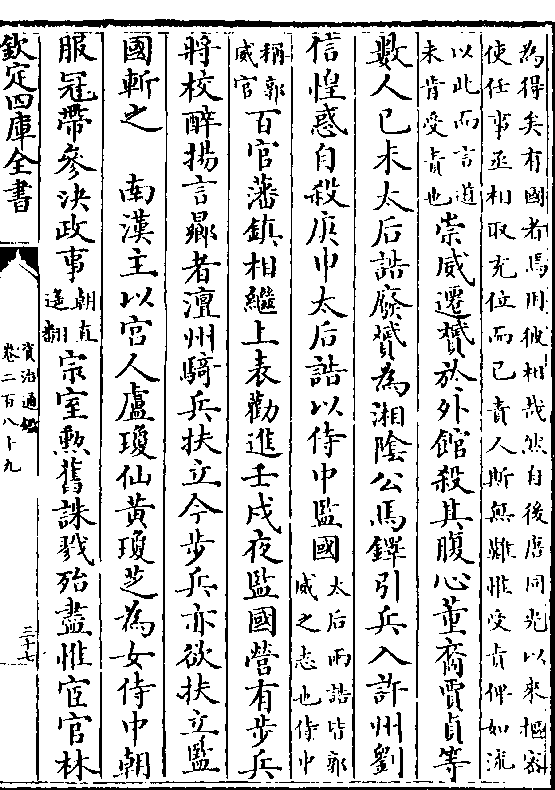 為得矣有國者焉用彼相哉然自後唐同光以來樞密
使任事丞相取充位而已責人斯無難惟受責俾如流
以此而言道
未肯受責也
崇威遷贇於外館殺其腹心董裔賈貞等
數人己未太后誥廢贇為湘陰公馬鐸引兵入許州劉
信惶惑自殺庚申太后誥以侍中監國
太后兩誥皆郭
威之志也侍中
稱郭
威官
百官藩鎮相繼上表勸進壬戌夜監國營有步兵
將校醉揚言曏者澶州騎兵扶立今步兵亦欲扶立監
國斬之　南漢主以宮人盧瓊仙黃瓊芝為女侍中朝
服冠帶參決政事
朝直
遙翻
宗室勲舊誅戮殆盡惟宦官林
欽定四庫全書
資治通鑑
卷二百八十九
三十七